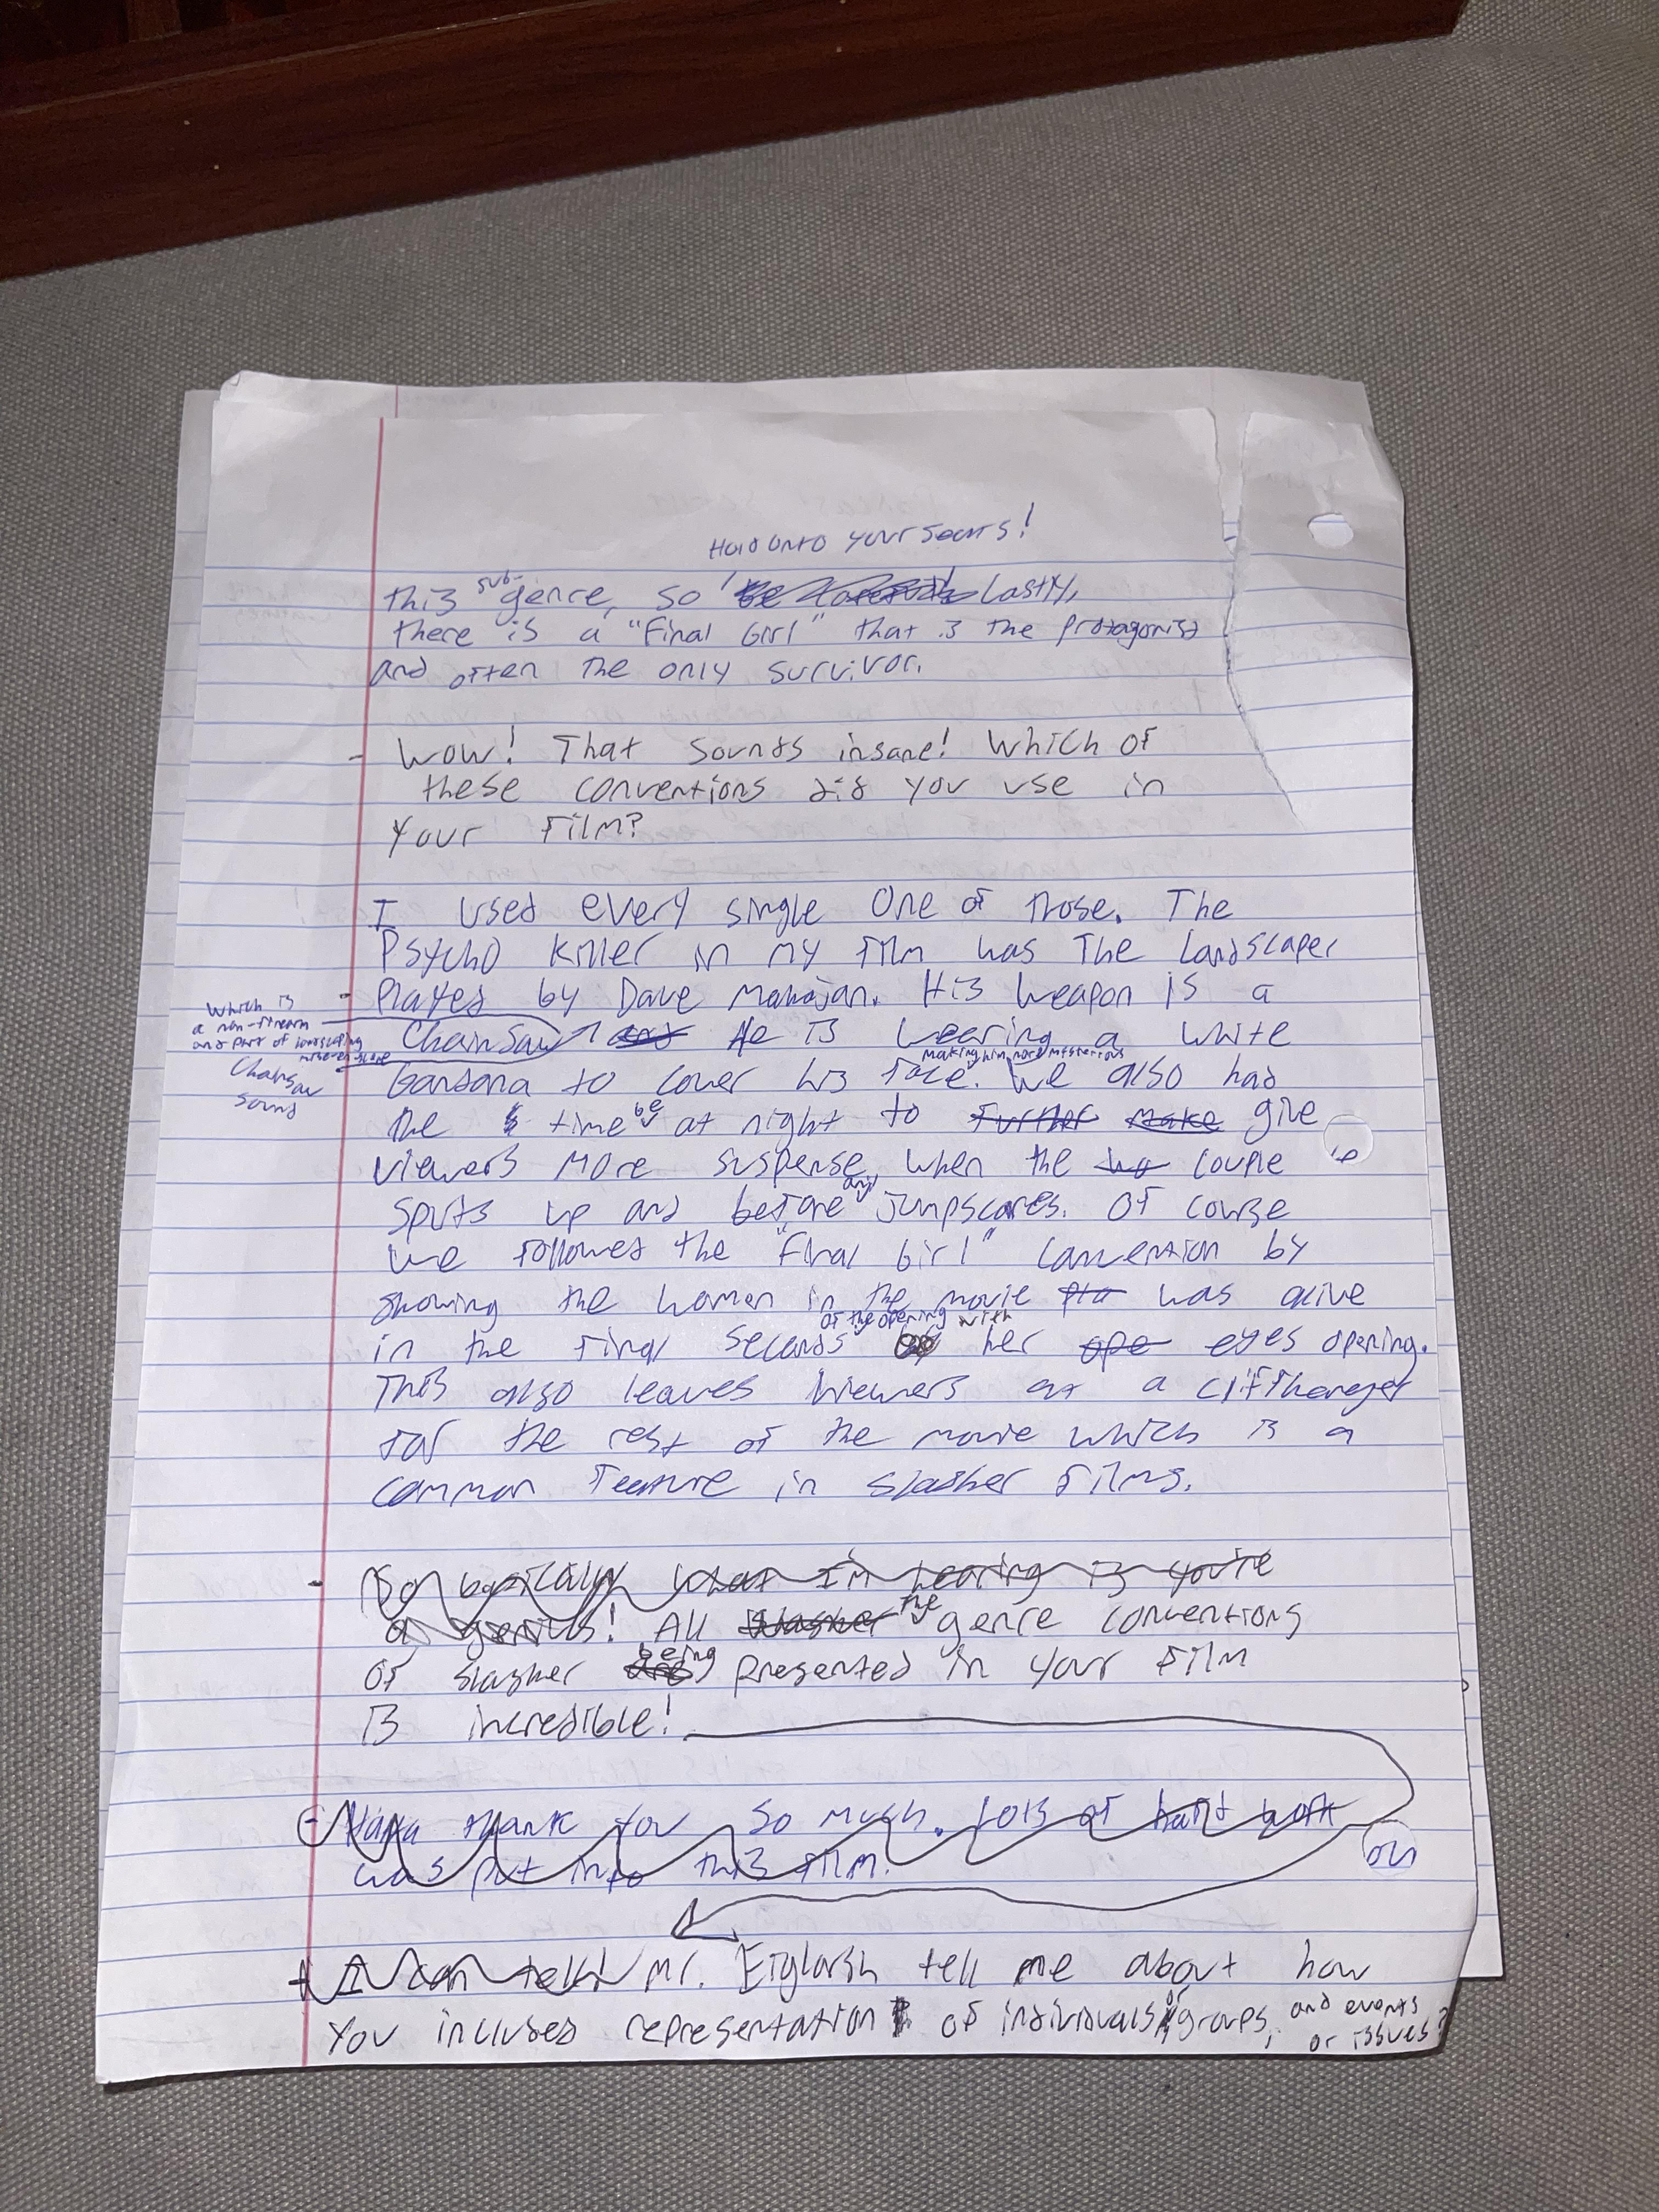 Hold onto your seats!
this sub-genre, so Lastly,
there is a "Final Girl" that is the protagonist
and often the only survivor.
- Wow! That sounds insane! Which of
these conventions did you use in
your film?
I used every single one of those. The
Psycho killer in my film was The Landscaper
- Played by Dave Mahajan. His weapon is a
which is
a non-firearm
and part of landscaping
mise-en-scene
Chainsaw and He is wearing a white
Chainsaw
sound
making him more mysterious
bandana to cover his face. We also had
the time be at night to further make give
viewers more suspense, when the couple
splits up and before any jumpscares. Of course
we followed the "Final Girl" convention by
showing the women in the movie was alive
of the opening with
in the final seconds her ope eyes opening.
This also leaves viewers at a cliffhanger
for the rest of the movie which is a
common feature in slasher films.
- So basically what I'm hearing is you're
a genius! All slasher the genre conventions
of slasher being presented in your film
is incredible!
- Haha thank you so much. Lots of hard work
was put into this film.
on
+ I can tell! Mr. Eiglarsh tell me about how
you included representation of individuals or groups, and events
or issues?